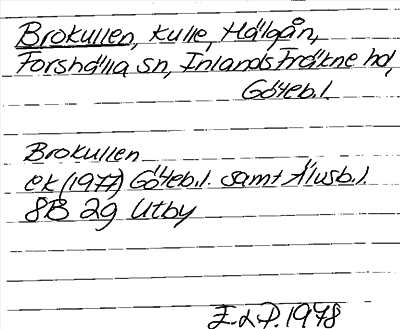 Brokullen, kulle, Hälgån,
Forshälla sn, Inlands Fräkne hd,
Göteb.l.
Brokullen
ek (1977) Göteb.l. samt Älvsb.l.
8B 2g Utby
1978